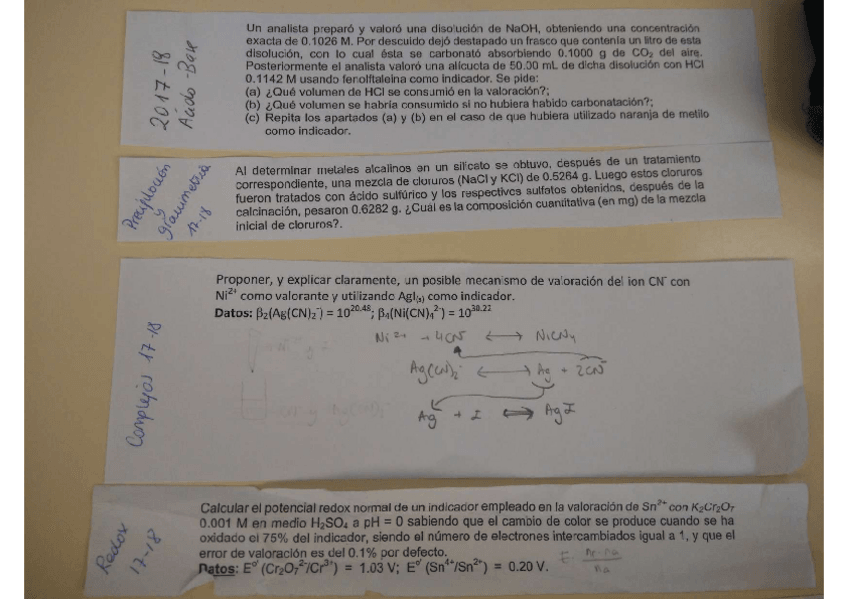 2017-18
Acido-Base
Un analista preparó y valoró una disolución de NaOH, obteniendo una concentración
exacta de 0.1026 M. Por descuido dejó destapado un frasco que contenía un litro de esta
disolución, con lo cual ésta se carbonató absorbiendo 0.1000 g de CO₂ del aire.
Posteriormente el analista valoró una alícuota de 50.00 mL de dicha disolución con HCl
0.1142 M usando fenolftaleina como indicador. Se pide:
(a) ¿Qué volumen de HCl se consumió en la valoración?;
(b) ¿Qué volumen se habría consumido si no hubiera habido carbonatación?;
(c) Repita los apartados (a) y (b) en el caso de que hubiera utilizado naranja de metilo
como indicador.
Precipitación
y
gravimetría
17-18
Al determinar metales alcalinos en un silicato se obtuvo, después de un tratamiento
correspondiente, una mezcla de cloruros (NaCl y KCl) de 0.5264 g. Luego estos cloruros
fueron tratados con ácido sulfúrico y los respectivos sulfatos obtenidos, después de la
calcinación, pesaron 0.6282 g. ¿Cuál es la composición cuantitativa (en mg) de la mezcla
inicial de cloruros?.
Complejos 17-18
Proponer, y explicar claramente, un posible mecanismo de valoración del ion CN⁻ con
Ni²⁺ como valorante y utilizando AgI₍ₛ₎ como indicador.
Datos: β₂(Ag(CN)₂⁻) = 10²⁰·⁴⁸; β₄(Ni(CN)₄²⁻) = 10³⁰·²²
Ni²⁺ + 4CN⁻ ⟷ NiCN₄
Ag(CN)₂⁻ ⟷ Ag + 2CN⁻
Ag + I ⟷ AgI
Redox
17-18
Calcular el potencial redox normal de un indicador empleado en la valoración de Sn²⁺ con K₂Cr₂O₇
0.001 M en medio H₂SO₄ a pH = 0 sabiendo que el cambio de color se produce cuando se ha
oxidado el 75% del indicador, siendo el número de electrones intercambiados igual a 1, y que el
error de valoración es del 0.1% por defecto.
Datos: E°' (Cr₂O₇²⁻/Cr³⁺) = 1.03 V; E°' (Sn⁴⁺/Sn²⁺) = 0.20 V.